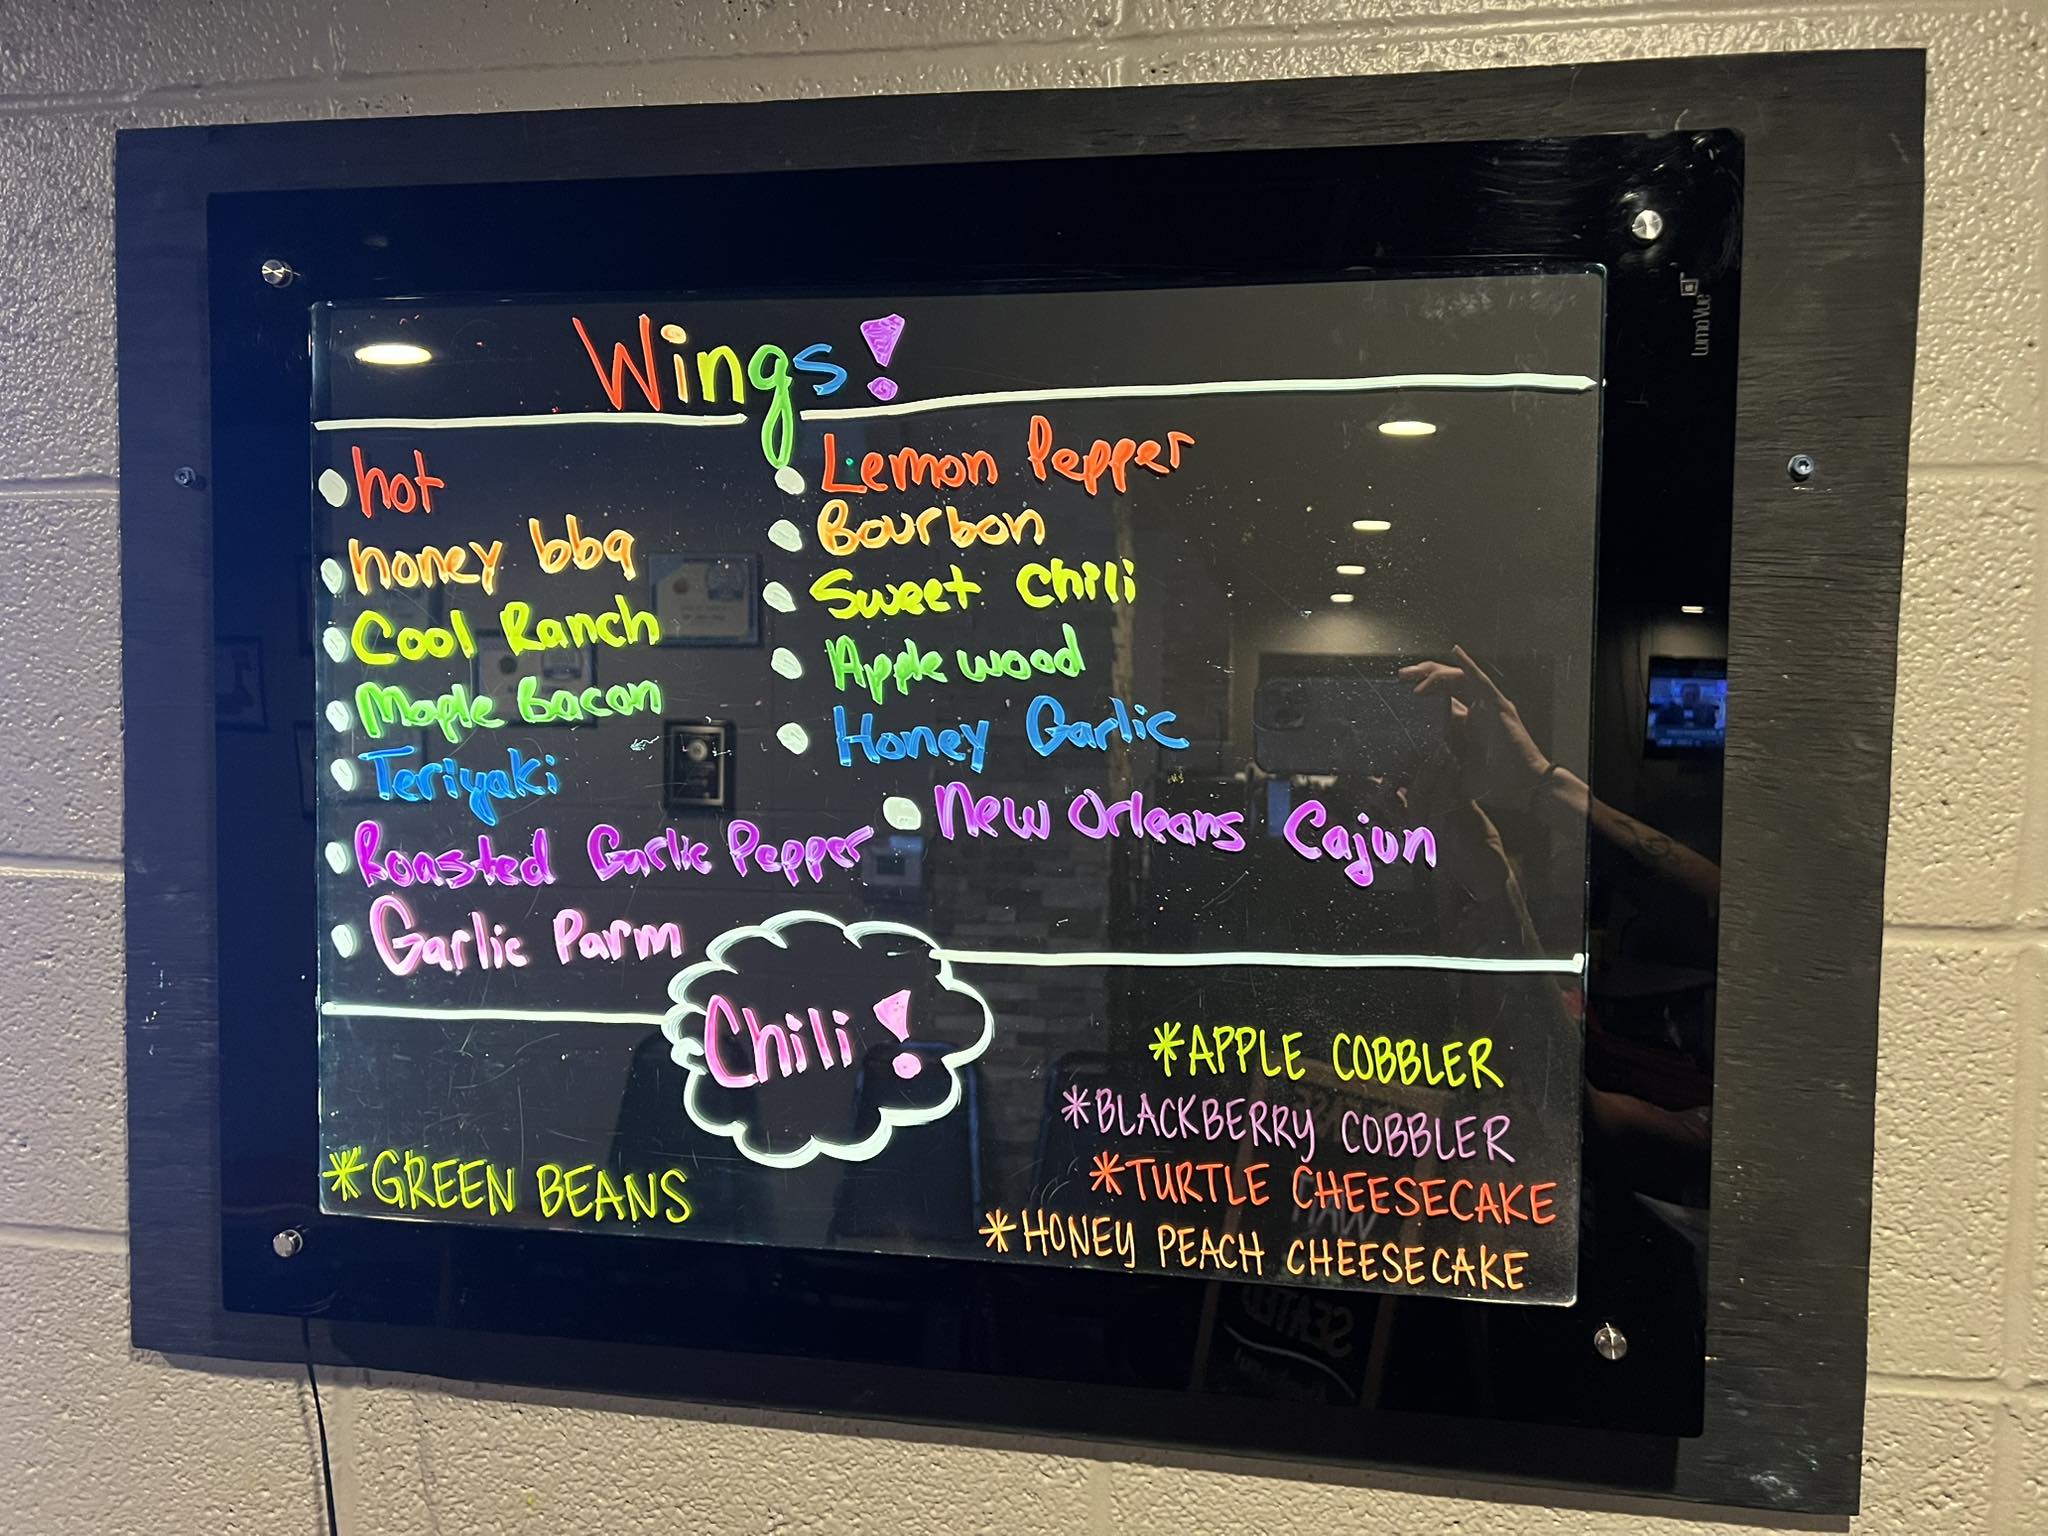 Wings!
hot
honey bbq
Cool Ranch
Maple Bacon
Teriyaki
Roasted Garlic Pepper
Garlic Parm
Lemon Pepper
Bourbon
Sweet Chili
Apple wood
Honey Garlic
New Orleans Cajun
Chili!
*GREEN BEANS
*APPLE COBBLER
*BLACKBERRY COBBLER
*TURTLE CHEESECAKE
*HONEY PEACH CHEESECAKE
LumaVue
SEATED